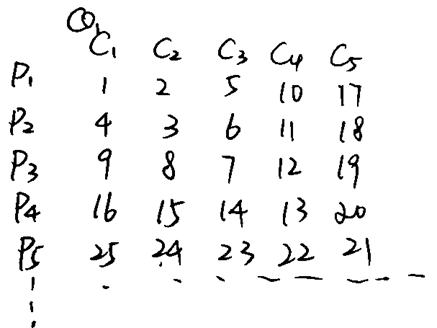 ①
C₁ C₂ C₃ C₄ C₅
P₁ 1 2 5 10 17
P₂ 4 3 6 11 18
P₃ 9 8 7 12 19
P₄ 16 15 14 13 20
P₅ 25 24 23 22 21